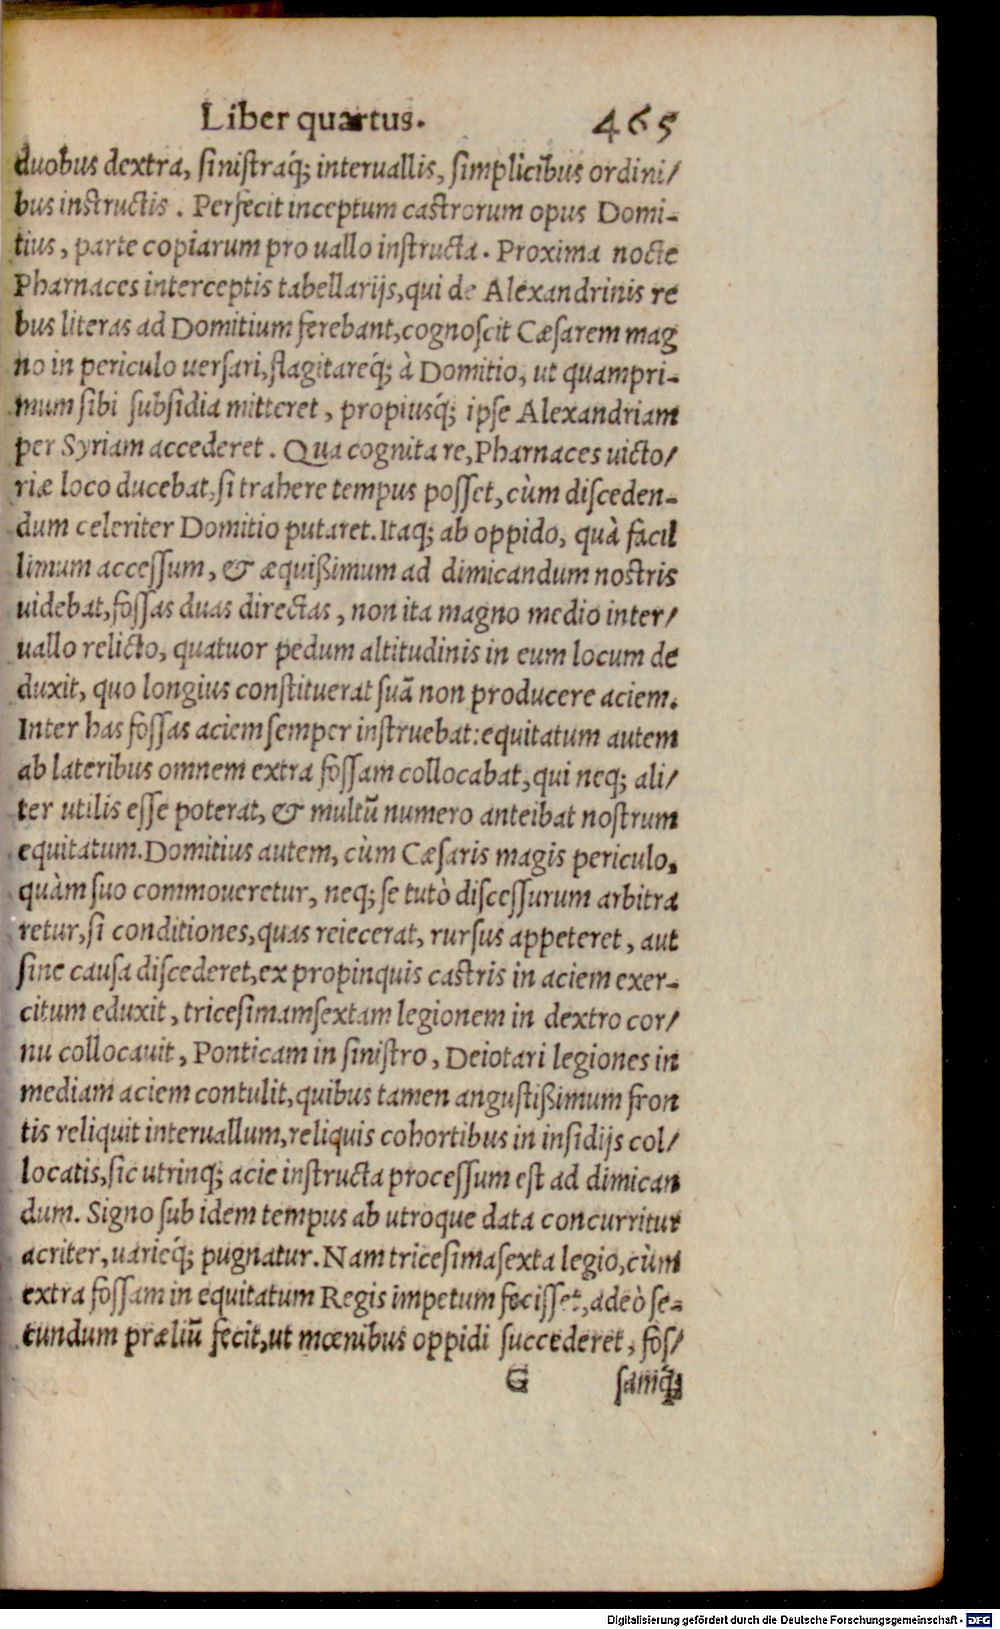 Liber quartus. 465
duobus dextra, sinistraq́; interuallis, simplicibus ordini/
bus instructis. Perfecit inceptum castrorum opus Domi-
tius, parte copiarum pro uallo instructa. Proxima nocte
Pharnaces interceptis tabellarijs, qui de Alexandrinis re
bus literas ad Domitium ferebant, cognoscit Cæsarem mag
no in periculo uersari, flagitareq́; à Domitio, ut quampri-
mum sibi subsidia mitteret, propiusq́; ipse Alexandriam
per Syriam accederet. Qua cognita re, Pharnaces uicto/
riæ loco ducebat, si trahere tempus posset, cùm disceden-
dum celeriter Domitio putaret. Itaq; ab oppido, quà facil
limum accessum, & æquißimum ad dimicandum nostris
uidebat, fossas duas directas, non ita magno medio inter/
uallo relicto, quatuor pedum altitudinis in eum locum de
duxit, quo longius constituerat suã non producere aciem.
Inter has fossas aciem semper instruebat: equitatum autem
ab lateribus omnem extra fossam collocabat, qui neq; ali/
ter utilis esse poterat, & multũ numero anteibat nostrum
equitatum. Domitius autem, cùm Cæsaris magis periculo,
quàm suo commoueretur, neq; se tutò discessurum arbitra
retur, si conditiones, quas reiecerat, rursus appeteret, aut
sine causa discederet, ex propinquis castris in aciem exer-
citum eduxit, tricesimamsextam legionem in dextro cor/
nu collocauit, Ponticam in sinistro, Deiotari legiones in
mediam aciem contulit, quibus tamen angustißimum fron
tis reliquit interuallum, reliquis cohortibus in insidijs col/
locatis, sic utrinq; acie instructa processum est ad dimican
dum. Signo sub idem tempus ab utroque data concurritur
acriter, uarieq́; pugnatur. Nam tricesimasexta legio, cùm
extra fossam in equitatum Regis impetum fecisset, adeò se-
cundum præliũ fecit, ut mœnibus oppidi succederet, fos/
G samq́;
Digitalisierung gefördert durch die Deutsche Forschungsgemeinschaft - DFG